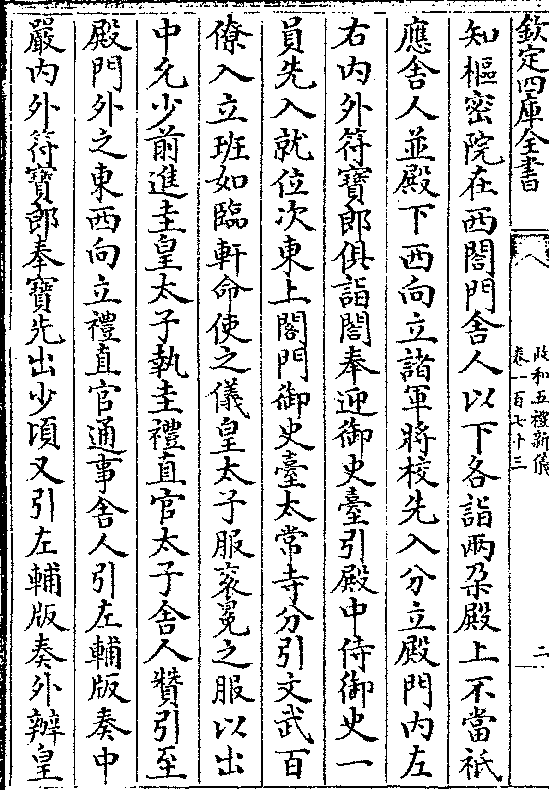 欽定四庫全書
政和五禮新儀
卷一百七十三
二
知樞密院在西閤門舍人以下各詣兩朶殿上不當祗
應舍人並殿下西向立諸軍將校先入分立殿門內左
右內外符寶郎俱詣閤奉迎御史臺引殿中侍御史一
員先入就位次東上閤門御史臺太常寺分引文武百
僚入立班如臨軒命使之儀皇太子服衮冕之服以出
中允少前進圭皇太子執圭禮直官太子舍人贊引至
殿門外之東西向立禮直官通事舍人引左輔版奏中
嚴內外符寶郎奉寶先出少頃又引左輔版奏外辦皇